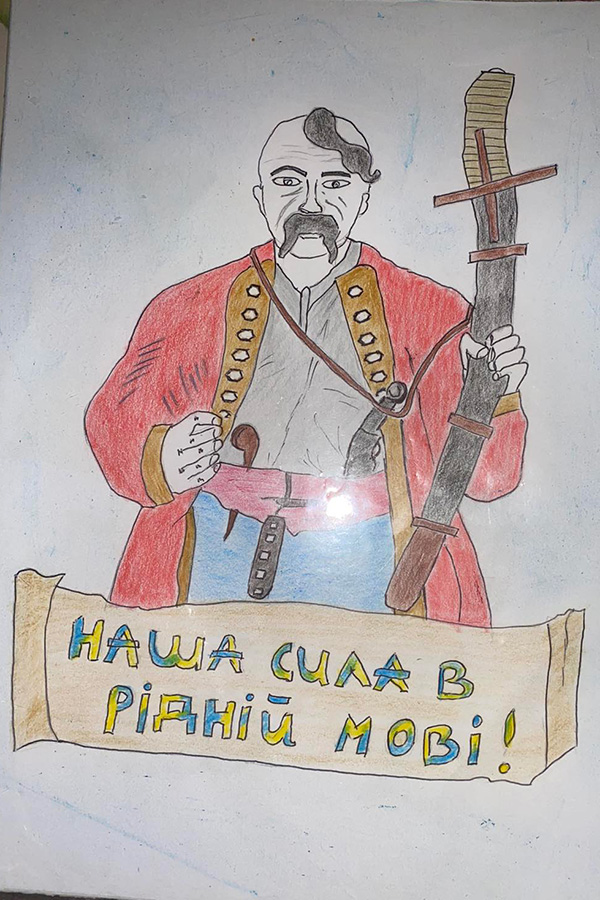 НАША СИЛА В
РІДНІЙ МОВІ!